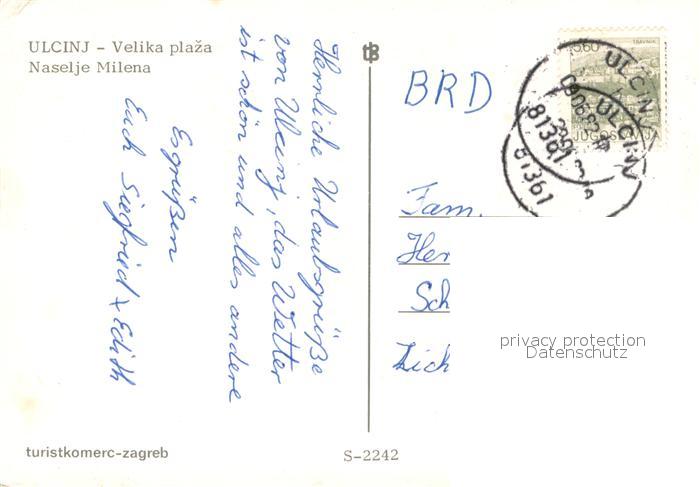 ULCINJ - Velika plaža
Naselje Milena
Herrliche Urlaubsgrüße
von Ulcinj, das Wetter
ist schön und alles andere
Es grüßen
Euch Siegfried & Edith
turistkomerc-zagreb
S-2242
tB
BRD
TRAVNIK
5,60
JUGOSLAVIJA
ULCINJ
81361
ULCINJ
81361
Fam.
Her
Sch
Lich
privacy protection
Datenschutz